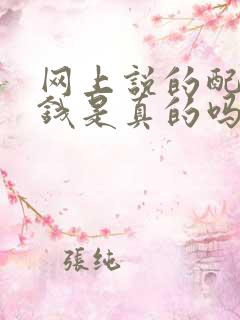 网上说的配
钱是真的吗
张纯